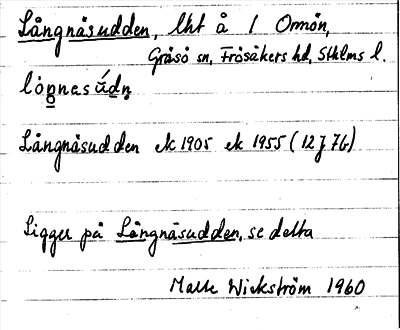 Långnäsudden, lht å / Ormön,
Gräsö sn, Frösåkers hd, Sthlms l.
Långnäsudden ek 1905 ek 1955 (12J 7b)
Ligger på Långnäsudden, se detta
Malle Wickström 1960